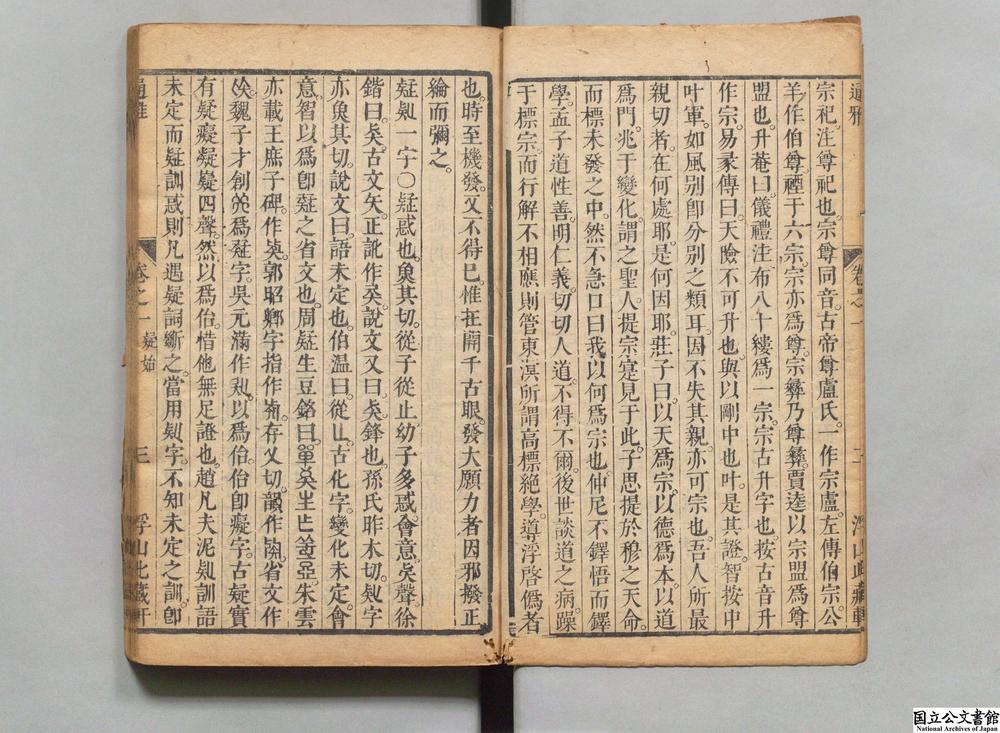 通雅
卷之一
二
浮山此藏軒
宗祀注尊祀也宗尊同音古帝尊盧氏一作宗盧左傳伯宗公
羊作伯尊禋于六宗宗亦爲尊宗彝乃尊彝賈逵以宗盟爲尊
盟也升菴曰儀禮注布八十縷爲一宗宗古升字也按古音升
作宗易彖傳曰天險不可升也與以剛中也叶是其證智按中
叶軍如風别卽分别之類耳因不失其親亦可宗也吾人所最
親切者在何處耶是何因耶莊子曰以天爲宗以德爲本以道
爲門兆于變化謂之聖人提宗寔見于此子思提於穆之天命
而標未發之中然不急口曰我以何爲宗也仲尼不鐸悟而鐸
學孟子道性善明仁義切切人道不得不爾後世談道之病躁
于標宗而行解不相應則管東溟所謂高標絶學導浮啓僞者
也時至機發又不得已惟在開千古眼發大願力者因邪撥正
綸而彌之
疑矣一字〇疑惑也魚其切從子從止幼子多惑會意矣聲徐
鍇曰矣古文矢正訛作矣說文又曰矣鋒也孫氏昨木切矣字
亦魚其切說文曰語未定也伯溫曰從匕古化字變化未定會
意智以爲卽疑之省文也周疑生豆銘曰單疑生匕善亞朱雲
亦載王庶子碑作英郭昭卿字指作嵛存乂切韻作䦨省文作
矣魏子才創英爲疑字吳元滿作矣以爲佁佁卽癡字古疑實
有疑癡礙嶷四聲然以爲佁惜他無足證也趙凡夫泥矣訓語
未定而疑訓惑則凡遇疑詞斷之當用矣字不知未定之訓卽
通雅
卷之一 疑始
三
浮山此藏軒
国立公文書館
National Archives of Japan